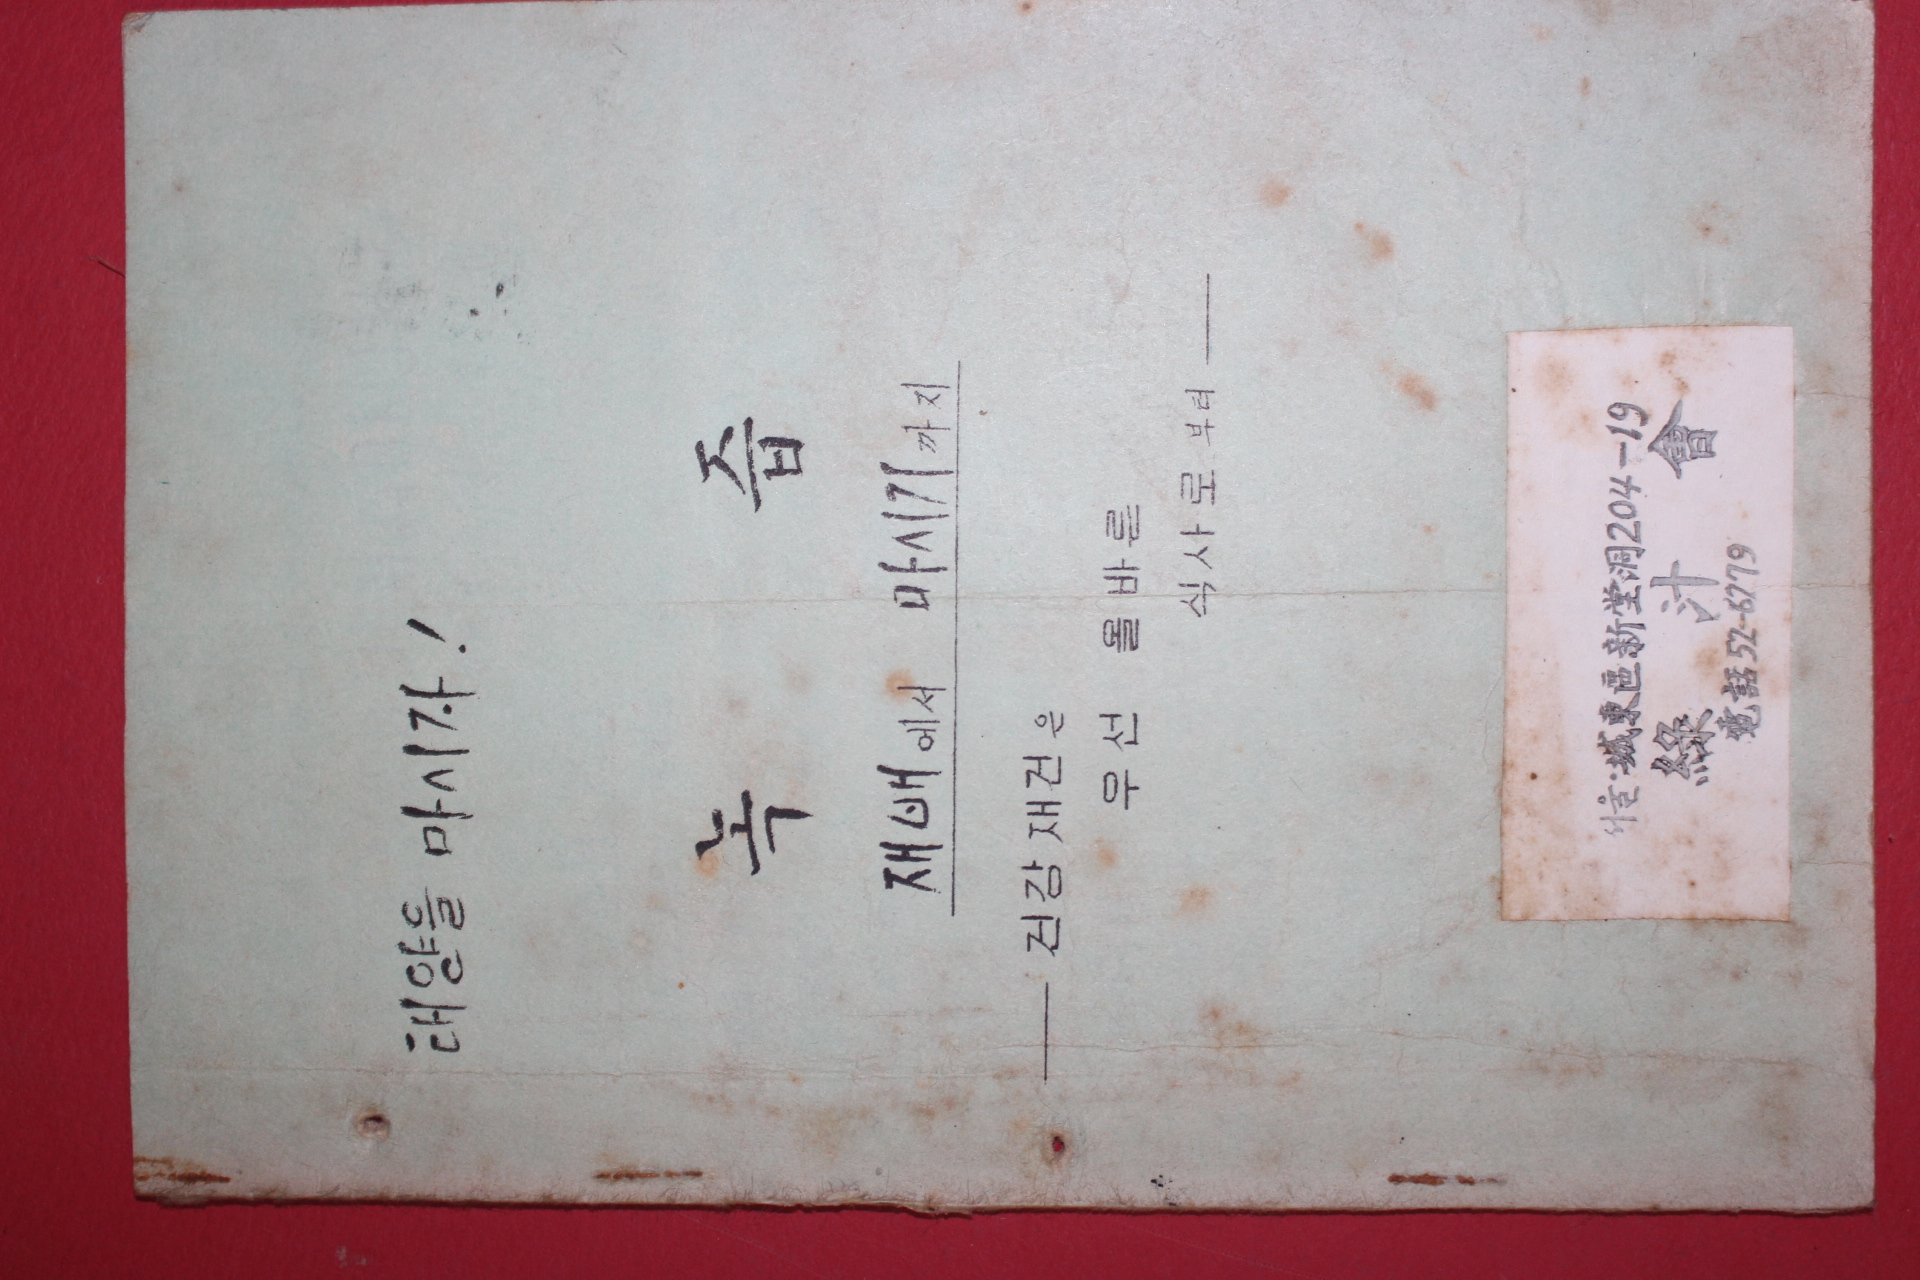 태양을 마시자!
녹 즙
재배에서 마시기까지
건강재건은
우선 올바른
식사로부터
서울·城東區新堂洞204-19
綠 汁 會
電話 52-6779